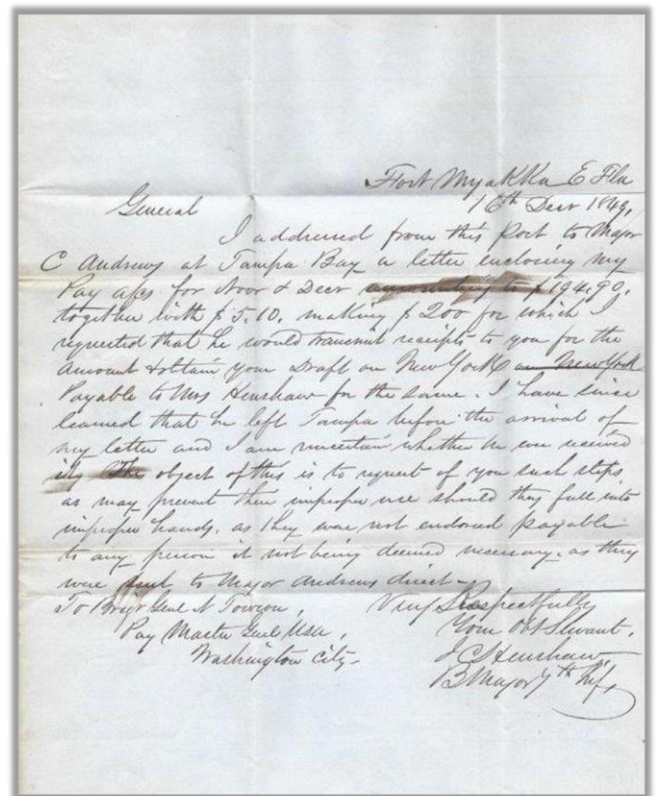 Fort Myakka E Fla
16th Decr 1849,
General
I addressed from this Post to Major
C Andrews at Tampa Bay a letter enclosing my
Pay a/cs for Novr & Decr amounting to $194.90,
together with $5.10. making $200 for which I
requested that he would transmit receipts to you for the
amount & obtain your Draft on New York on New York
Payable to Mrs Henshaw for the same. I have since
learned that he left Tampa before the arrival of
my letter and I am uncertain whether he ever received
it, The object of this is to request of you such steps
as may prevent their improper use should they fall into
improper hands. as they were not endorsed payable
to any person it not being deemed necessary as they
were sent to Major Andrews direct -
Very Respectfully
To Brigr Genl N Towson,
Your Obt Servant,
Pay Master Genl USA,
J C Henshaw,
Washington City -
B Major 7th Inf,